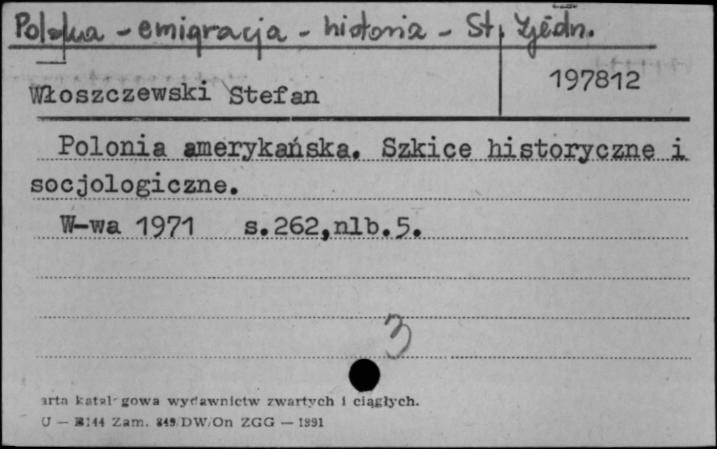 Polska - emigracja - historia - St. Zjedn.
197812
Włoszczewski Stefan
Polonia amerykańska. Szkice historyczne i
socjologiczne.
W-wa 1971 s.262,nlb.5.
3
arta katal gowa wydawnictw zwartych i ciągłych.
U — 144 Zam. 849/DW/On ZGG — 1991